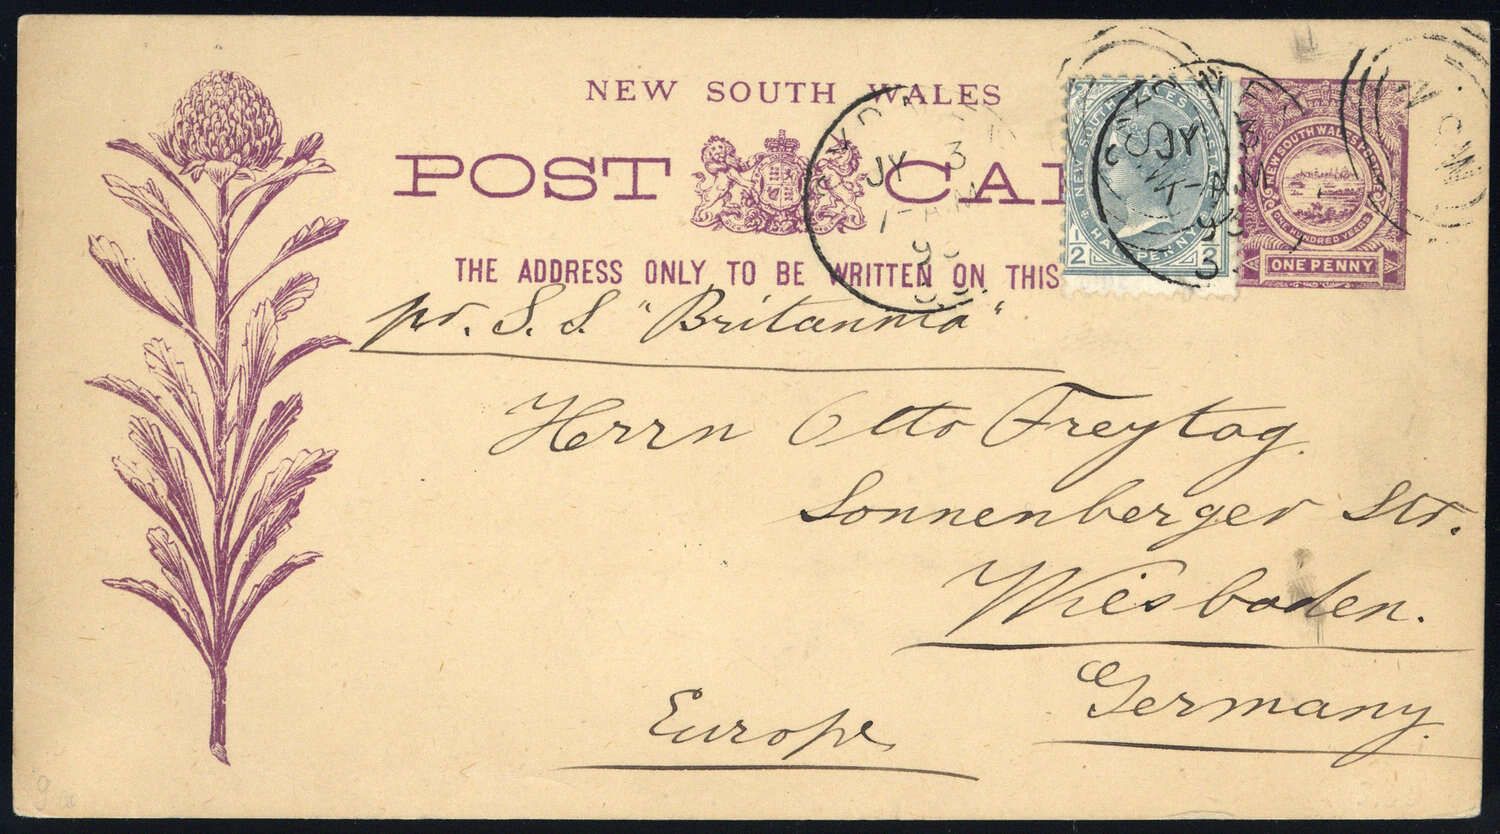 NEW SOUTH WALES
POST CA
THE ADDRESS ONLY TO BE WRITTEN ON THIS
SYDNEY
JY 3
1-AM
93
NEW SOUTH WALES POSTAGE
HALFPENNY
1/2 1/2
JY 3
AM
93
NEW SOUTH WALES POSTAGE
ONE HUNDRED YEARS
ONE PENNY
N.S.W
pr. S. S. "Britannia"
Herrn Otto Freytag.
Sonnenberger Str.
Wiesbaden.
Germany.
Europe